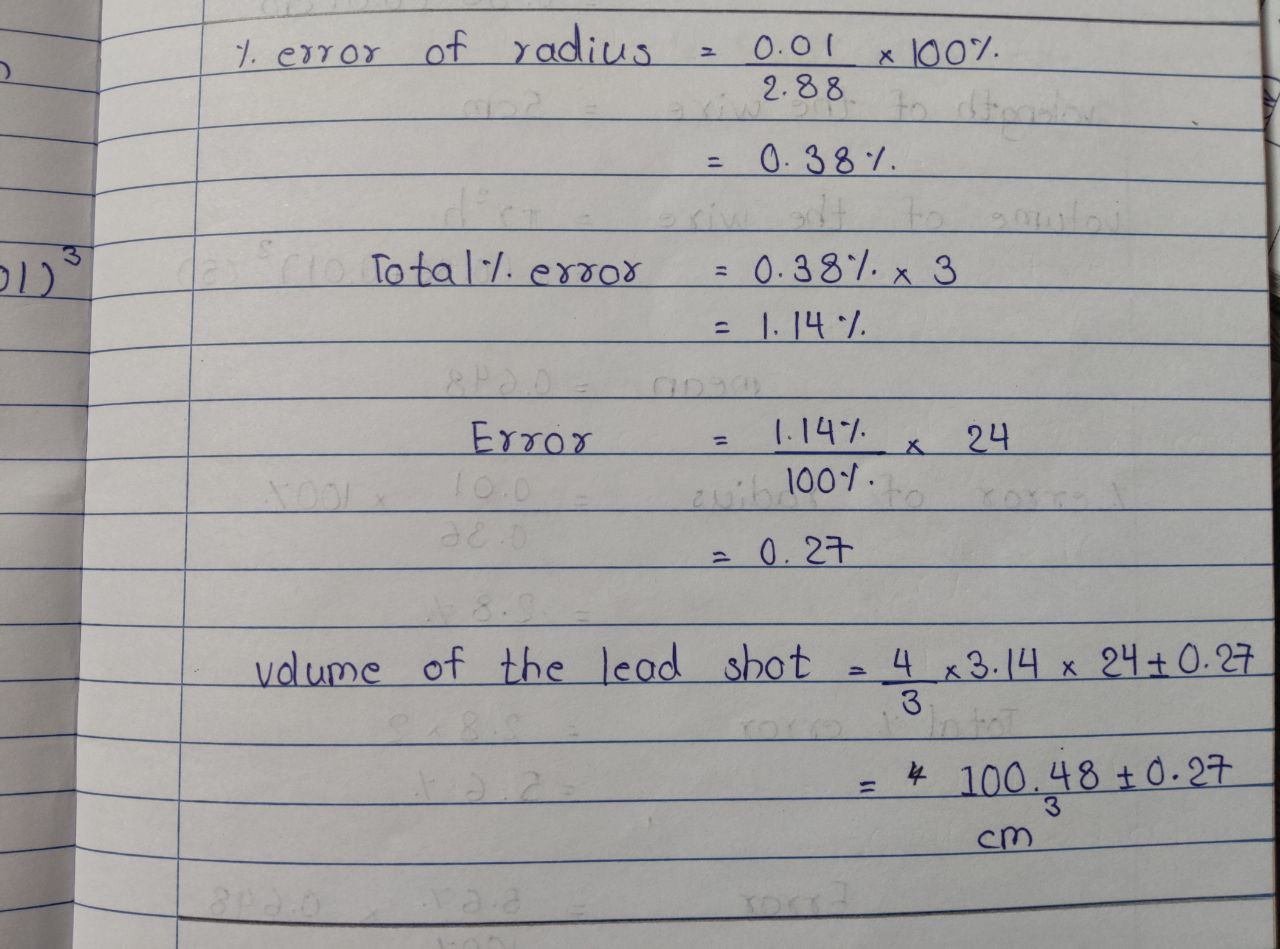 % error of radius = 0.01 / 2.88 × 100%
= 0.38%
01)³
Total % error = 0.38% × 3
= 1.14%
Error = 1.14% / 100% × 24
= 0.27
volume of the lead shot = 4/3 × 3.14 × 24 ± 0.27
= 4 100.48 ± 0.27
cm³